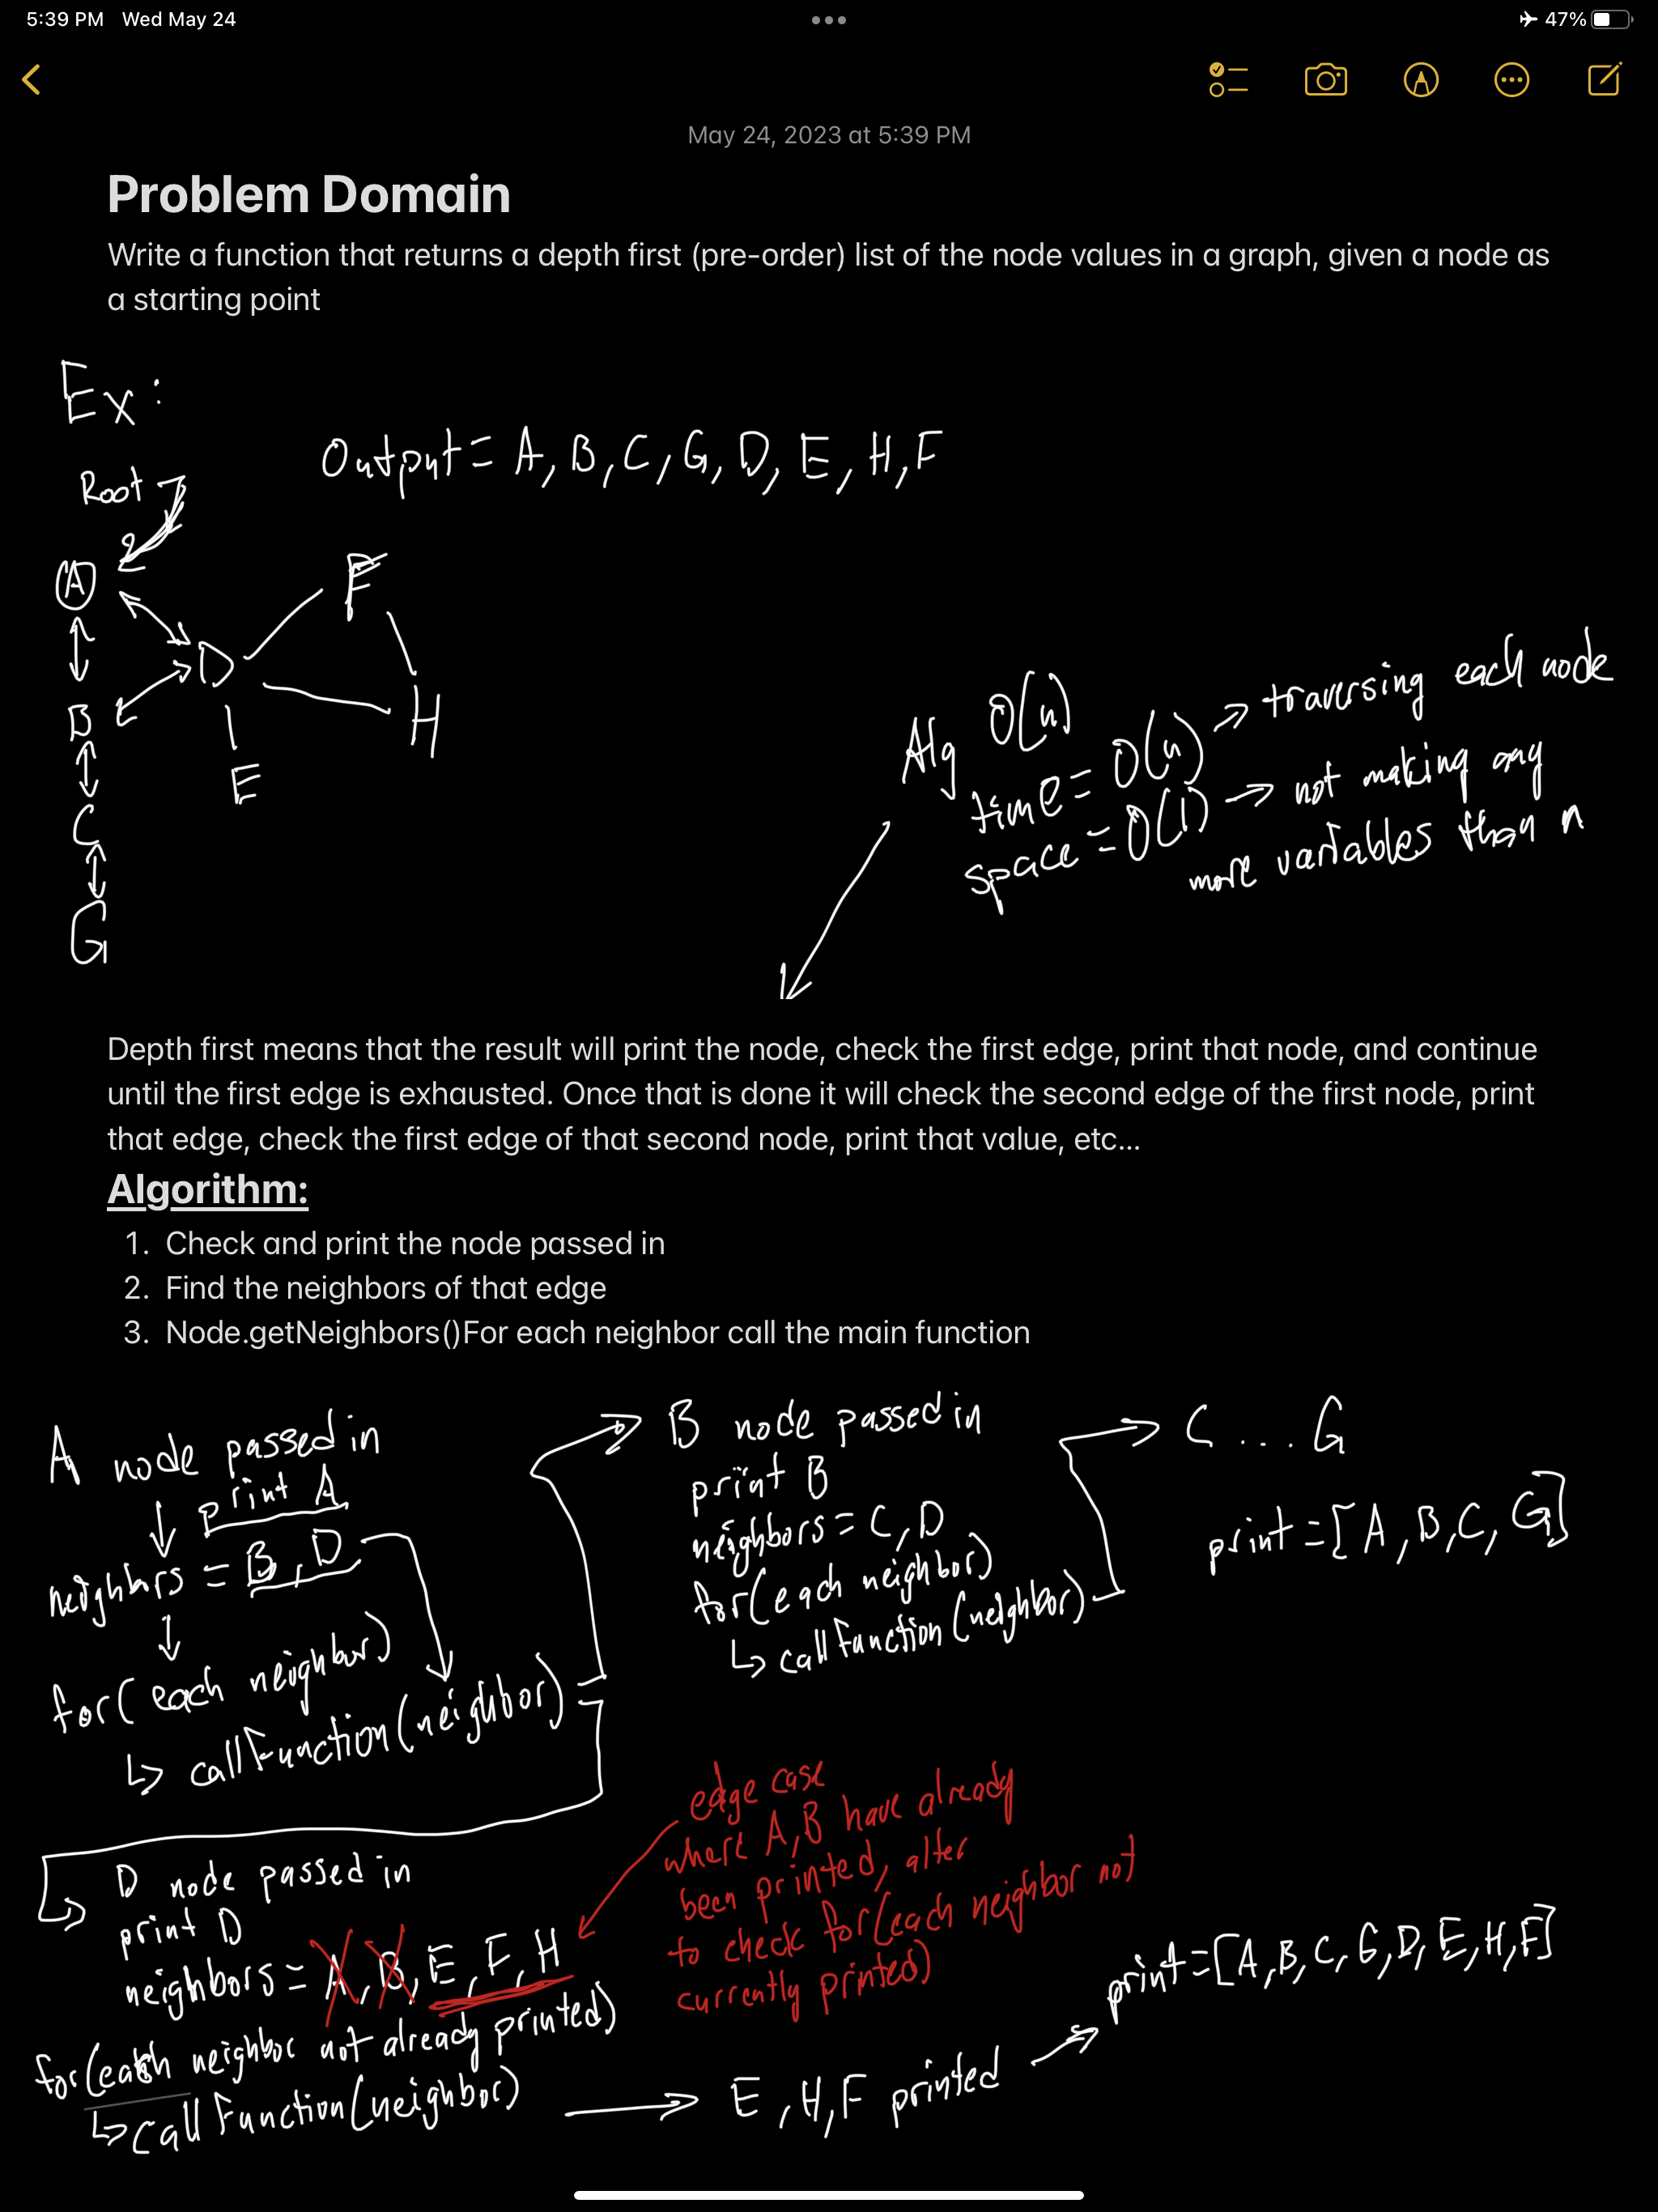 5:39 PM Wed May 24
47%
May 24, 2023 at 5:39 PM
Problem Domain
Write a function that returns a depth first (pre-order) list of the node values in a graph, given a node as
a starting point
Ex:
Output = A, B, C, G, D, E, H, F
Root
A
F
D
B
H
E
C
G
Alg O(n)
time = O(n) → traversing each node
space = O(1) → not making any
more variables than n
Depth first means that the result will print the node, check the first edge, print that node, and continue
until the first edge is exhausted. Once that is done it will check the second edge of the first node, print
that edge, check the first edge of that second node, print that value, etc...
Algorithm:
1. Check and print the node passed in
2. Find the neighbors of that edge
3. Node.getNeighbors()For each neighbor call the main function
A node passed in
↓ print A
neighbors = B, D
↓
for( each neighbor)
↳ callFunction(neighbor)
B node passed in
print B
neighbors = C, D
for(each neighbor)
↳ callFunction(neighbor)
C ... G
print = [A, B, C, G]
edge case
where A, B have already
been printed, alter
to check for(each neighbor not
currently printed)
D node passed in
print D
neighbors = A, B, E, F, H
for(each neighbor not already printed)
↳ callFunction(neighbor) → E, H, F printed →
print = [A, B, C, G, D, E, H, F]